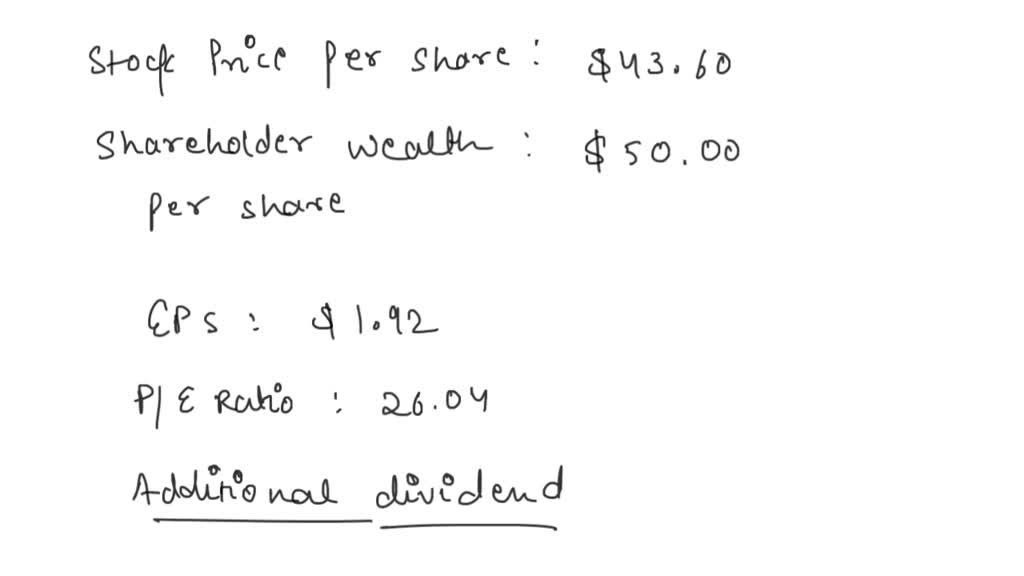 Stock Price Per share : $43.60
Shareholder wealth : $50.00
Per share
EPS : $1.92
P/E Ratio : 26.04
Additional dividend